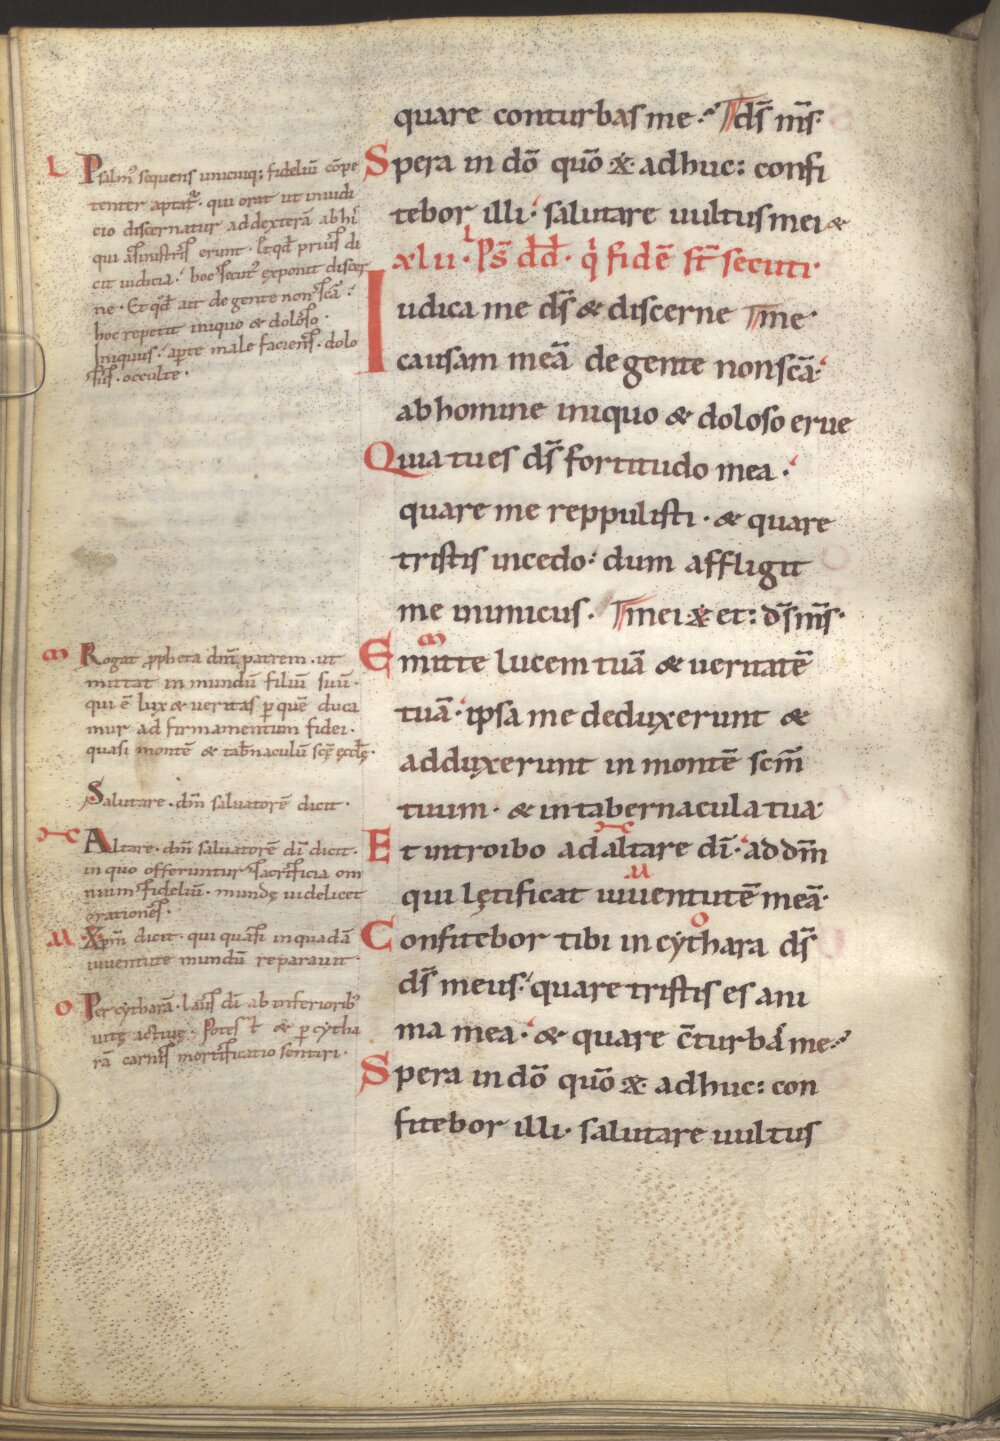 quare conturbas me· ds̄ m̄s·
Spera in dō quō x̄ adhuc: confi
tebor illi· salutare uultus mei &
xlii· Ps̄ dd̄· q̇ fidē st̄ secuti·
Iudica me ds̄ & discerne me·
causam meā de gente non scā·
ab homine iniquo & doloso erue
Quia tu es ds̄ fortitudo mea·
quare me reppulisti· & quare
tristis incedo· dum affligit
me inimicus· mei· x̄ et: ds̄ m̄s·
Emitte lucem tuā & ueritatē
tuā· ipsa me deduxerunt &
adduxerunt in montē scm̄
tuum· & in tabernacula tua·
Et introibo ad altare dī· ad dm̄
qui lętificat iuuentutē meā·
Confitebor tibi in cythara ds̄
ds̄ meus· quare tristis es ani
ma mea· & quare c̄turbas me·
Spera in dō quō x̄ adhuc: con
fitebor illi· salutare uultus
L Psalm' sequens unicuiq; fideliū cōpe
tenter aptat᷑· qui orat ut in iudi
cio discernatur ad dexterā ab hi'
qui a sinistris erunt· Et qd̄ prius di
cit iudicia· hoc secut' exponit discer
ne· Et qd̄ ait de gente non scā·
hoc repetit iniquo & doloso·
Iniquus· apte male faciens· dolo
sus· occulte·
m Rogat ꝓpheta dm̄ patrem· ut
mittat in mundū filiū suū·
qui ē lux & ueritas ꝑ quē duca
mur ad firmamentum fidei·
quasi montē & tab̄naculū scę ęccłę·
Salutare· dm̄ saluatorē dicit·
Altare· dm̄ saluatorē dī dicit·
in quo offeruntur sacrificia om
nium fideliū· mundę uidelicet
orationes·
u Xpm̄ dicit· qui quasi in quadā
iuuentute mundū reparauit·
o Per cytharā· laus dī ab inferiorib'
uitę actiuę· Potest & ꝑ cytha
rā carnis mortificatio sentiri·